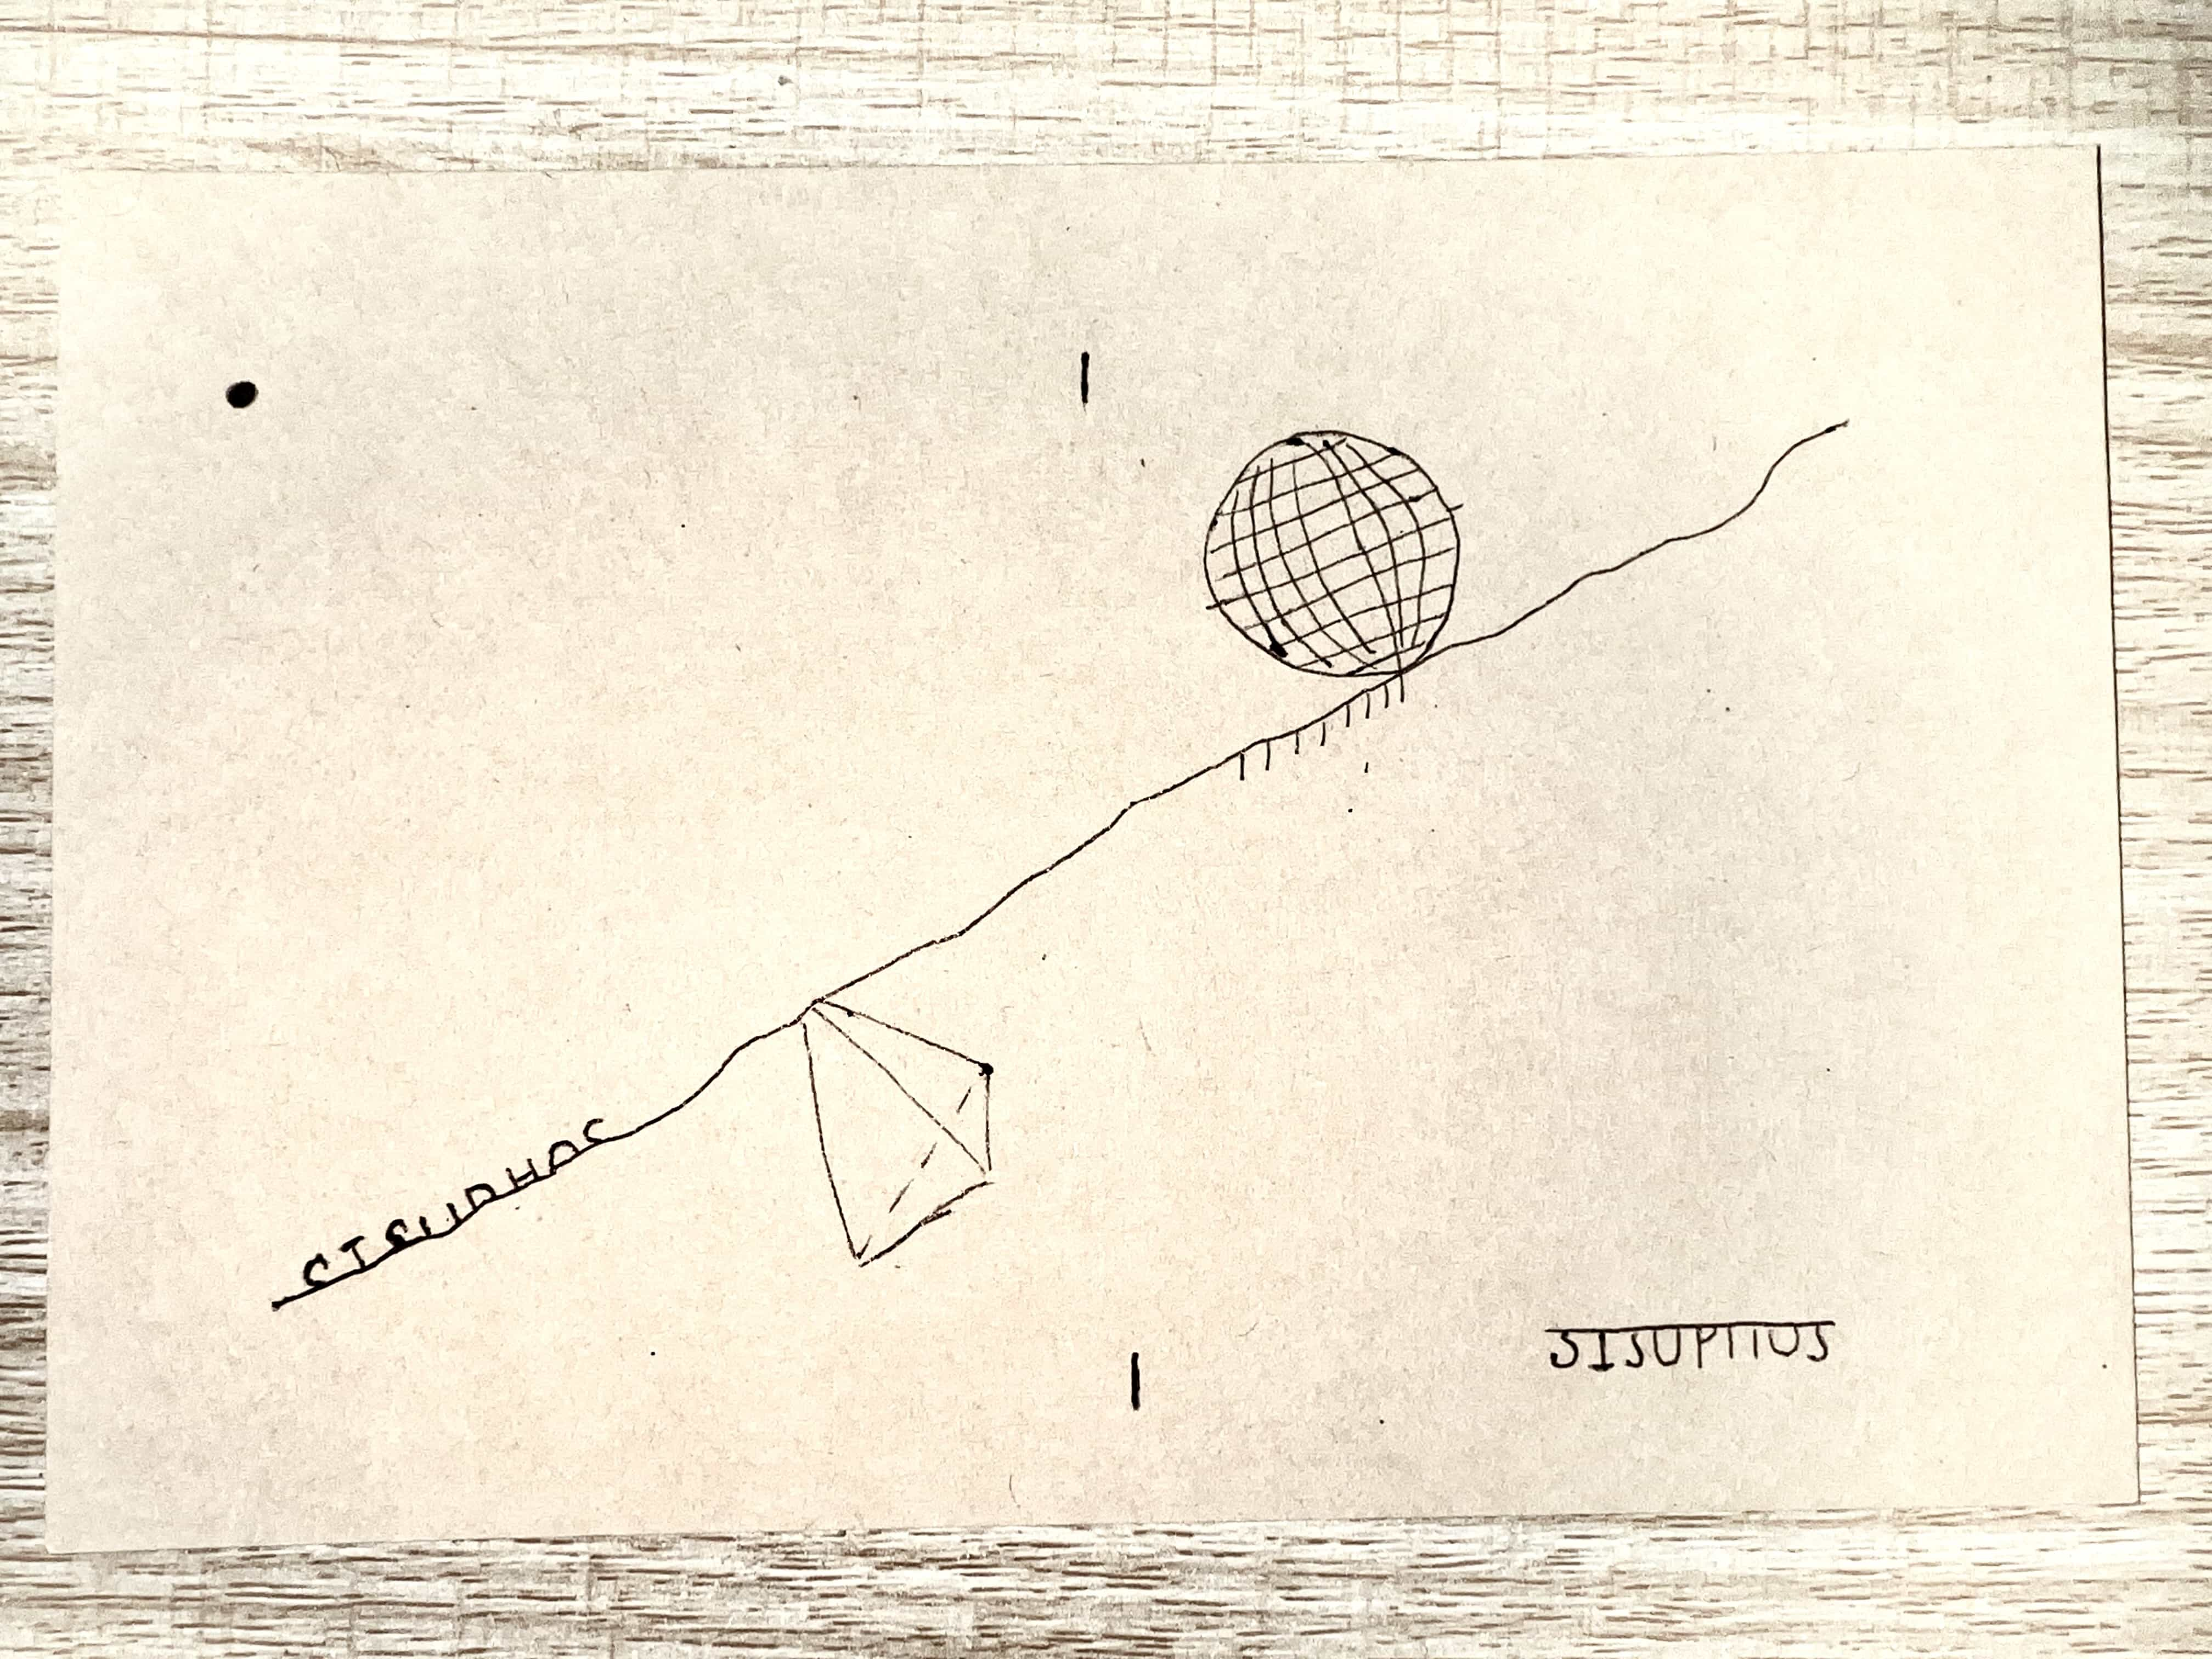 SISUPHOS
SISUPHOS